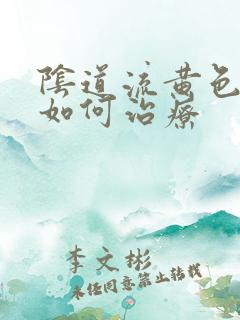 陰道流黄色
如何治療
李文彬
未任同意禁止转载